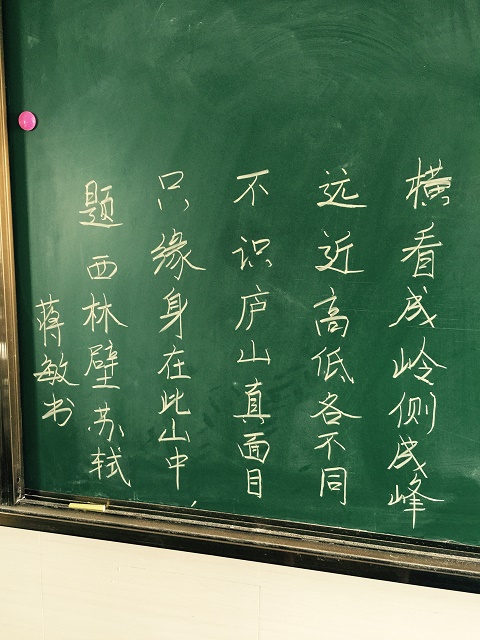 横看成岭侧成峰
远近高低各不同
不识庐山真面目
只缘身在此山中
题西林壁 苏轼
蒋敏书